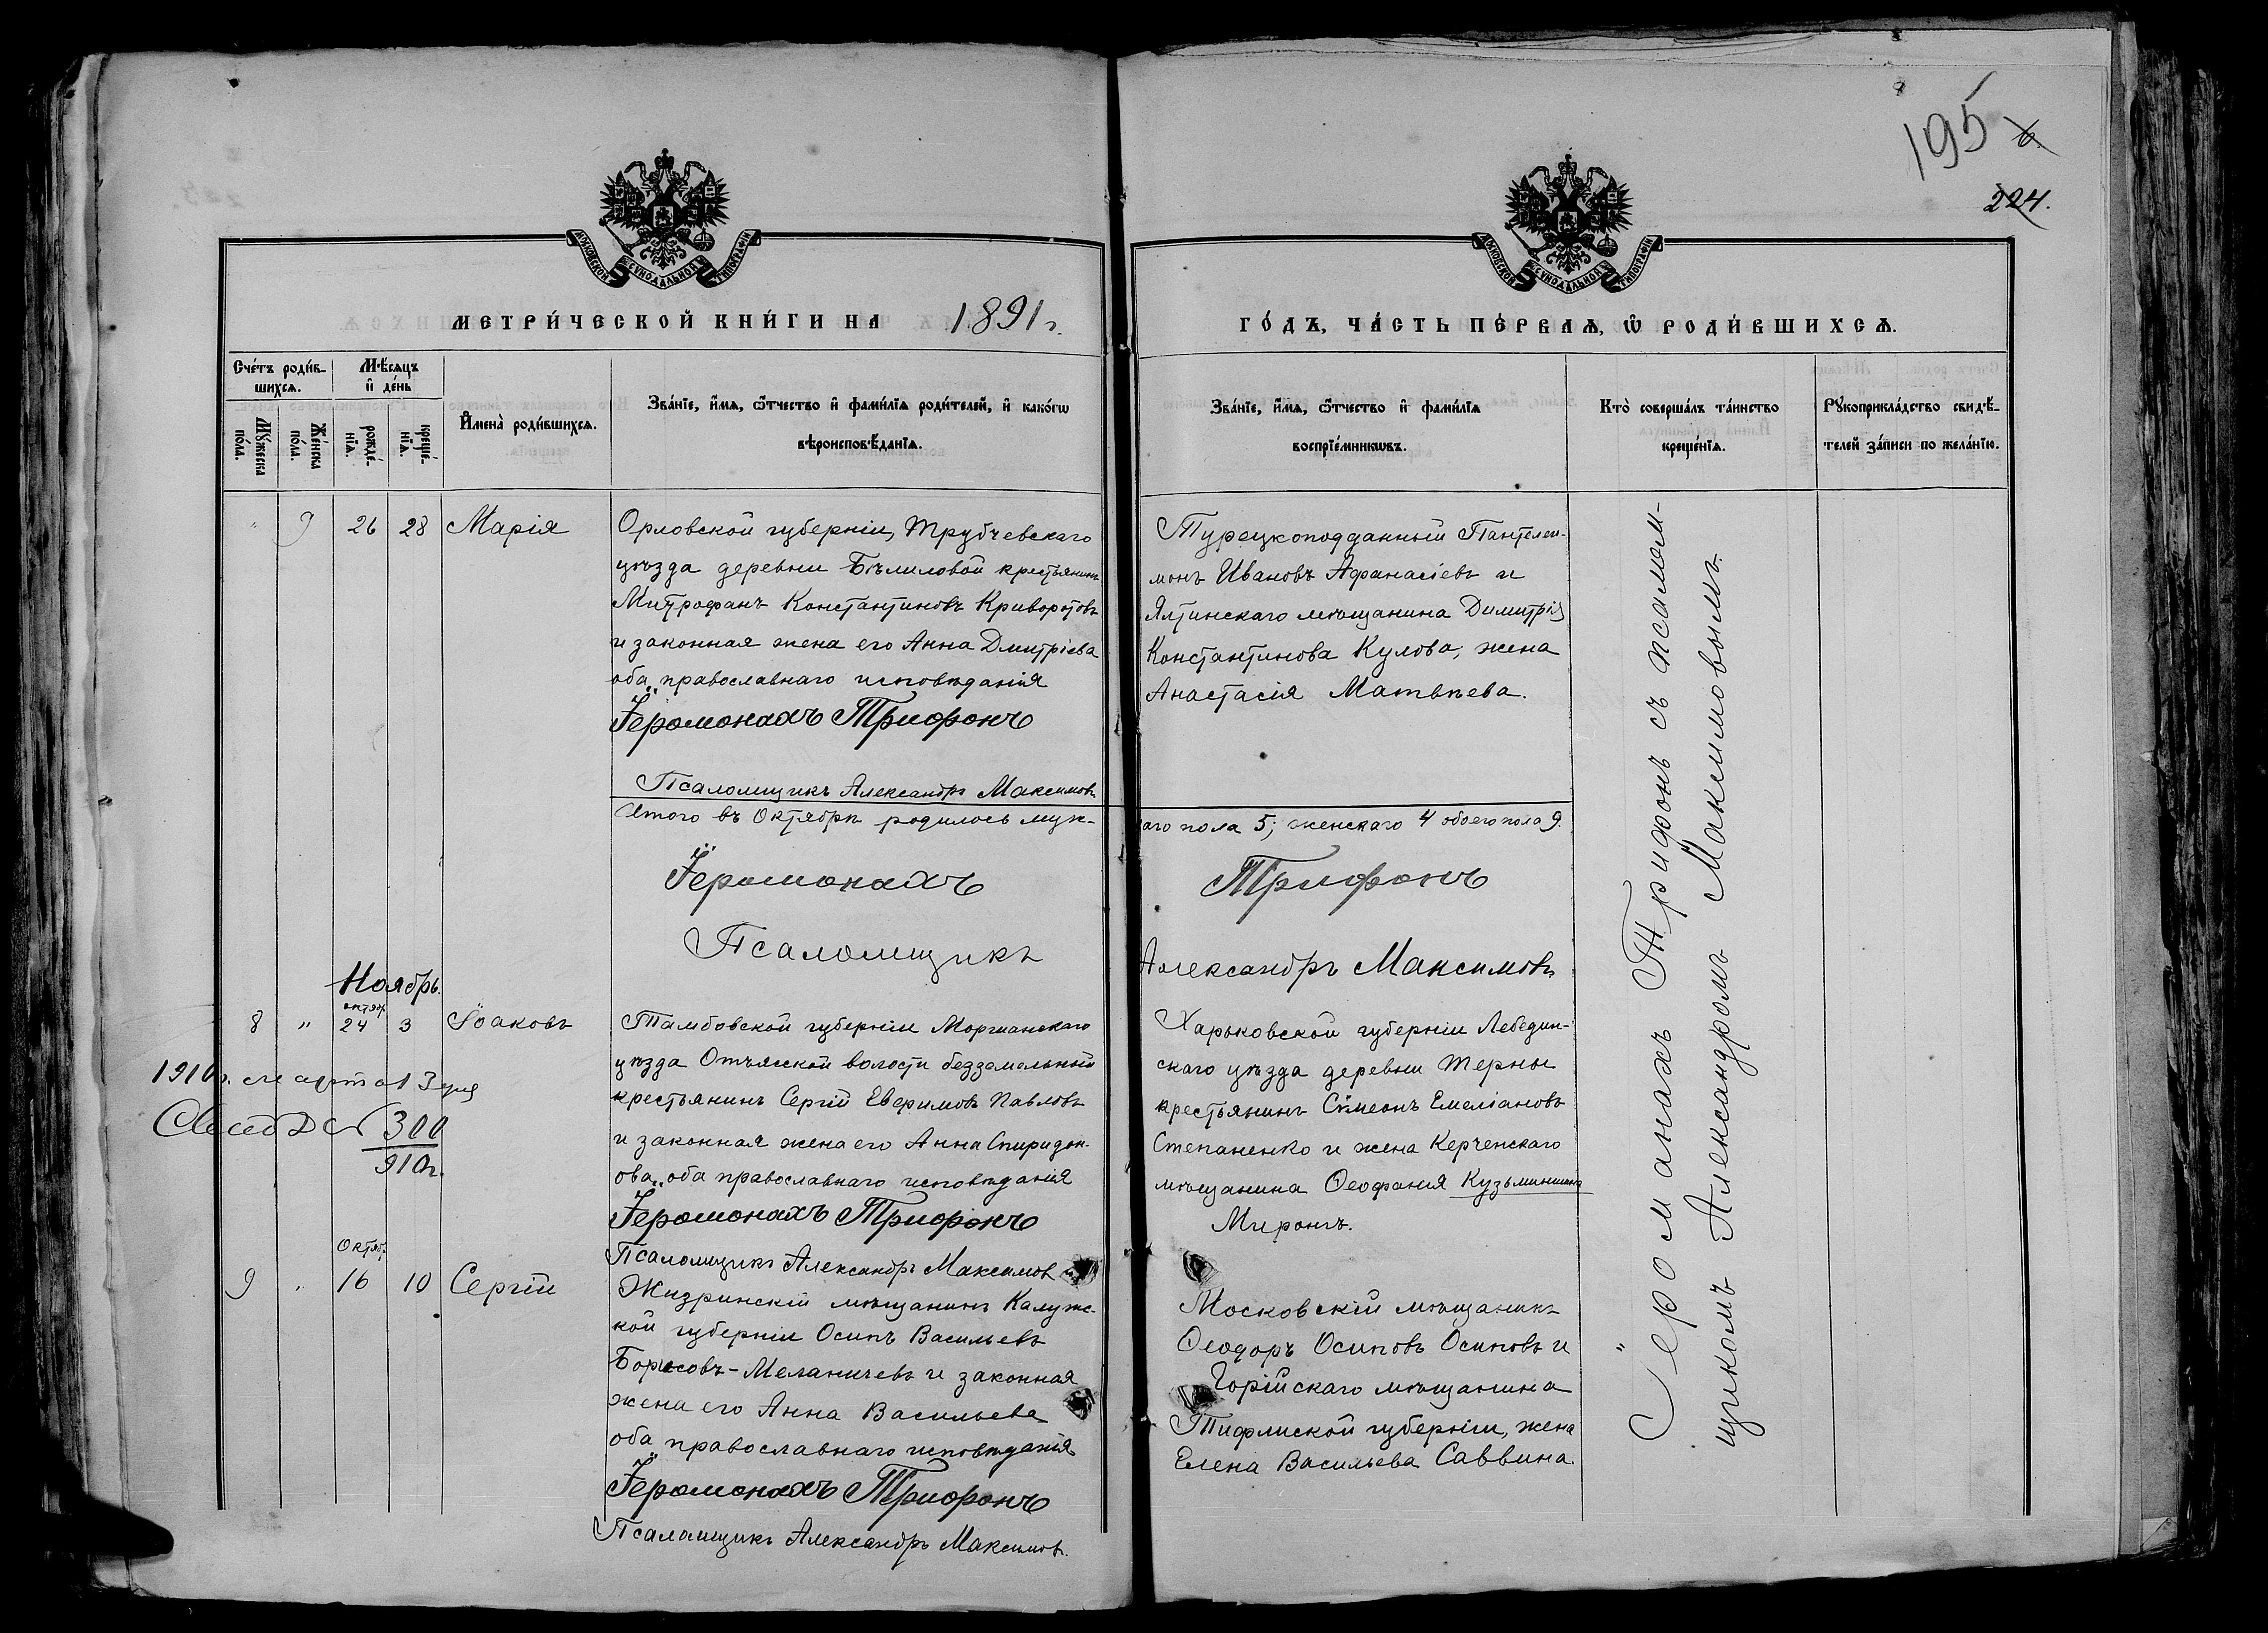 195
224.
МОСКОВСКОЙ СѴНОДАЛЬНОЙ ТИПОГРАФІИ
МОСКОВСКОЙ СѴНОДАЛЬНОЙ ТИПОГРАФІИ
МЕТРИ́ЧЕСКОЙ КНИ́ГИ НА 1891 г.
ГО́ДЪ, ЧА́СТЬ ПЕ́РВАѦ, Ѿ РОДИ́ВШИХСѦ.
Сче́тъ роди́в-
шихсѧ.
Мѣ́сѧцъ
и҆ де́нь
Мꙋ́жеска
по́ла.
Же́нска
по́ла.
рожде́-
нїѧ.
креще́-
нїѧ.
И҆мена̀ роди́вшихсѧ.
Зва́нїе, и҆́мѧ, ѻ҆́тчество и҆ фами́лїѧ роди́телей, и҆ како́гѡ
вѣроисповѣ́данїѧ.
Зва́нїе, и҆́мѧ, ѻ҆́тчество и҆ фами́лїѧ
воспрїе́мникѡвъ.
Кто̀ соверша́лъ та́инство
креще́нїѧ.
Рꙋкоприкла́дство свидѣ́-
телей за́писи по жела́нїю.
" 9 26 28 Марія
Орловской губерніи, Трубчевскаго
уѣзда деревни Бѣлиловой крестьянинъ
Митрофанъ Константиновъ Криворотовъ
и законная жена его Анна Дмитріева
оба православнаго исповѣданія
Іеромонахъ Трифонъ
Псаломщикъ Александръ Максимовъ
Турецкоподданный Пантелей-
монъ Ивановъ Афанасіевъ и
Ялтинскаго мѣщанина Димитрія
Константинова Кулова, жена
Анастасія Матвѣева.
Итого въ Октябрѣ родилось муж-
скаго пола 5; женскаго 4 обоего пола 9.
Іеромонахъ Трифонъ
Псаломщикъ Александръ Максимовъ
Ноябрь.
октяб.
8 " 24 3 Іоаковъ
Тамбовской губерніи Моршанскаго
уѣзда Отъясской волости безземельный
крестьянинъ Сергій Евфимовъ Павловъ
и законная жена его Анна Спиридон-
ова, оба православнаго исповѣданія
Іеромонахъ Трифонъ
Псаломщикъ Александръ Максимов
Харьковской губерніи Лебедин-
скаго уѣзда деревни Терны
крестьянинъ Симеонъ Емеліановъ
Степаненко и жена Керченскаго
мѣщанина Ѳеофанія Кузьминишна
Миронъ.
1910 г. марта 13 дня
300
910 г.
Октяб.
9 " 16 10 Сергій
Жиздринскій мѣщанинъ Калуж-
кой губерніи Осипъ Васильевъ
Борисовъ-Меланичевъ и законная
жена его Анна Васильева
оба православнаго исповѣданія
Іеромонахъ Трифонъ
Псаломщикъ Александръ Максимов.
Московскій мѣщанинъ
Ѳеодоръ Осиповъ Осиповъ и
Горійскаго мѣщанина
Тифлиской губерніи, жена
Елена Васильева Саввина.
Іеромонахъ Трифонъ съ псалом-
щикомъ Александромъ Максимовымъ